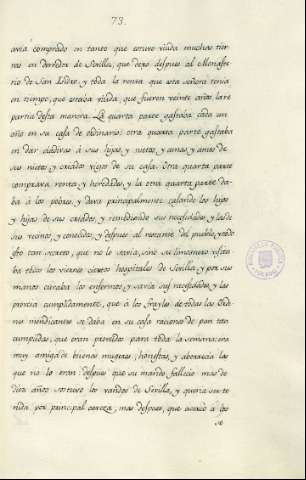 73.
avia comprado en tanto que estuvo viuda muchas tier
ras en derredor de Sevilla, que dexo despues al Monaste
rio de San Isidro, y toda la renta que esta señora tenia
en tiempo, que estaba viuda, que fueron veinte años, la re
partie desta manera. La quarta parte gastaba cada un
año en su casa de ordinario: otra quarta parte gastaba
en dar dadivas à sus hijos, y nietos, y amas, y amos de
sus nietos, y criados viejos de su casa. Otra quarta parte
comprava renta, y heredades, y la otra quarta parte da
ba à los pobres, y dava principalmente calando los hijos
y hijas de sus criados, y remediando sus necesidades, y las de
sus vecinos, y conocidos, y despues al restante del pueblo, y todo
esto tan secreto, que no lo savia, sinò su limosnero visita
ba todos los viernes ciertos hospitales de Sevilla, y por sus
manos curaba los enfermos, y savia sus necesidades, y las
proveia cumplidamente, que a los frayles de todas las Orde
nes mendicantes se daba en su casa raciones de pan tan
cumplidas, que eran proveidos para toda la semana: era
muy amiga de buenas mugeres, honestas, y aborrecia las
que no lo eran: despues que su marido fallecio mas de
diez años sostuvo los vandos de Sevilla, y queria ser te
nida por principal cabeza, mas despues, que acaecio à los
se